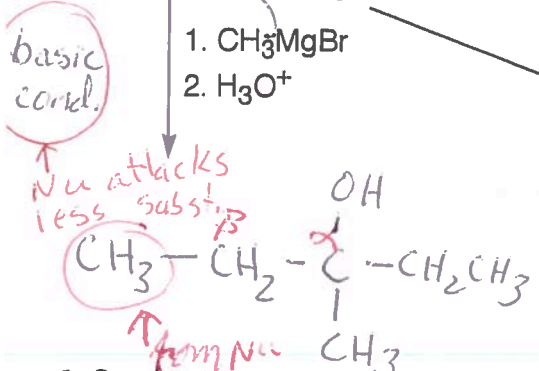 basic
cond.
1. CH3MgBr
2. H₃O⁺
Nu attacks
less subst.
β
OH
α
CH₃ — CH₂ - C - CH₂CH₃
CH₃
from Nu